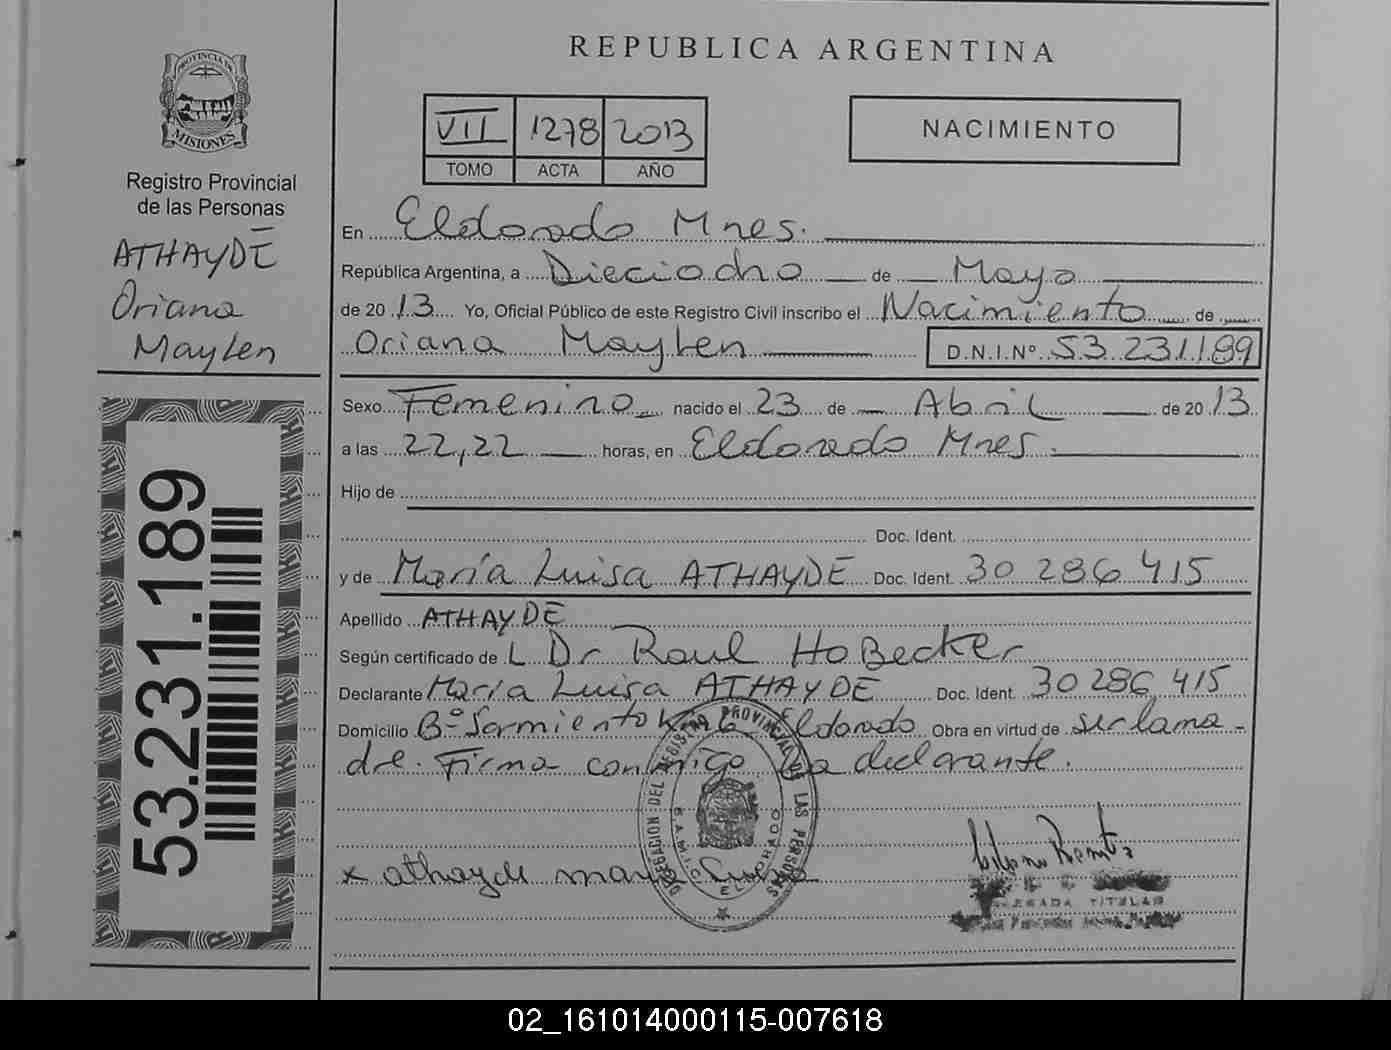 PROVINCIA DE
MISIONES
Registro Provincial
de las Personas
ATHAYDE
Oriana
Maylen
53.231.189
REPUBLICA ARGENTINA
VII 1278 2013
TOMO ACTA AÑO
NACIMIENTO
En Eldorado Mnes.
República Argentina, a Dieciocho de Mayo
de 2013 Yo, Oficial Público de este Registro Civil inscribo el Nacimiento de
Oriana Maylen D.N.I.Nº 53 231.189
Sexo Femenino nacido el 23 de Abril de 2013
a las 22,22 horas, en Eldorado Mnes.
Hijo de
Doc. Ident.
y de María Luisa ATHAYDE Doc. Ident. 30 286 415
Apellido ATHAYDE
Según certificado de L Dr Raul HoBecker
Declarante María Luisa ATHAYDE Doc. Ident. 30 286 415
Domicilio Bº Sarmiento Eldorado Obra en virtud de ser la ma-
dre. Firma conmigo la declarante.
DELEGACION DEL REGISTRO PROVINCIAL DE LAS PERSONAS
ELDORADO
x athayde maria Luisa
TITULAR
02_161014000115-007618